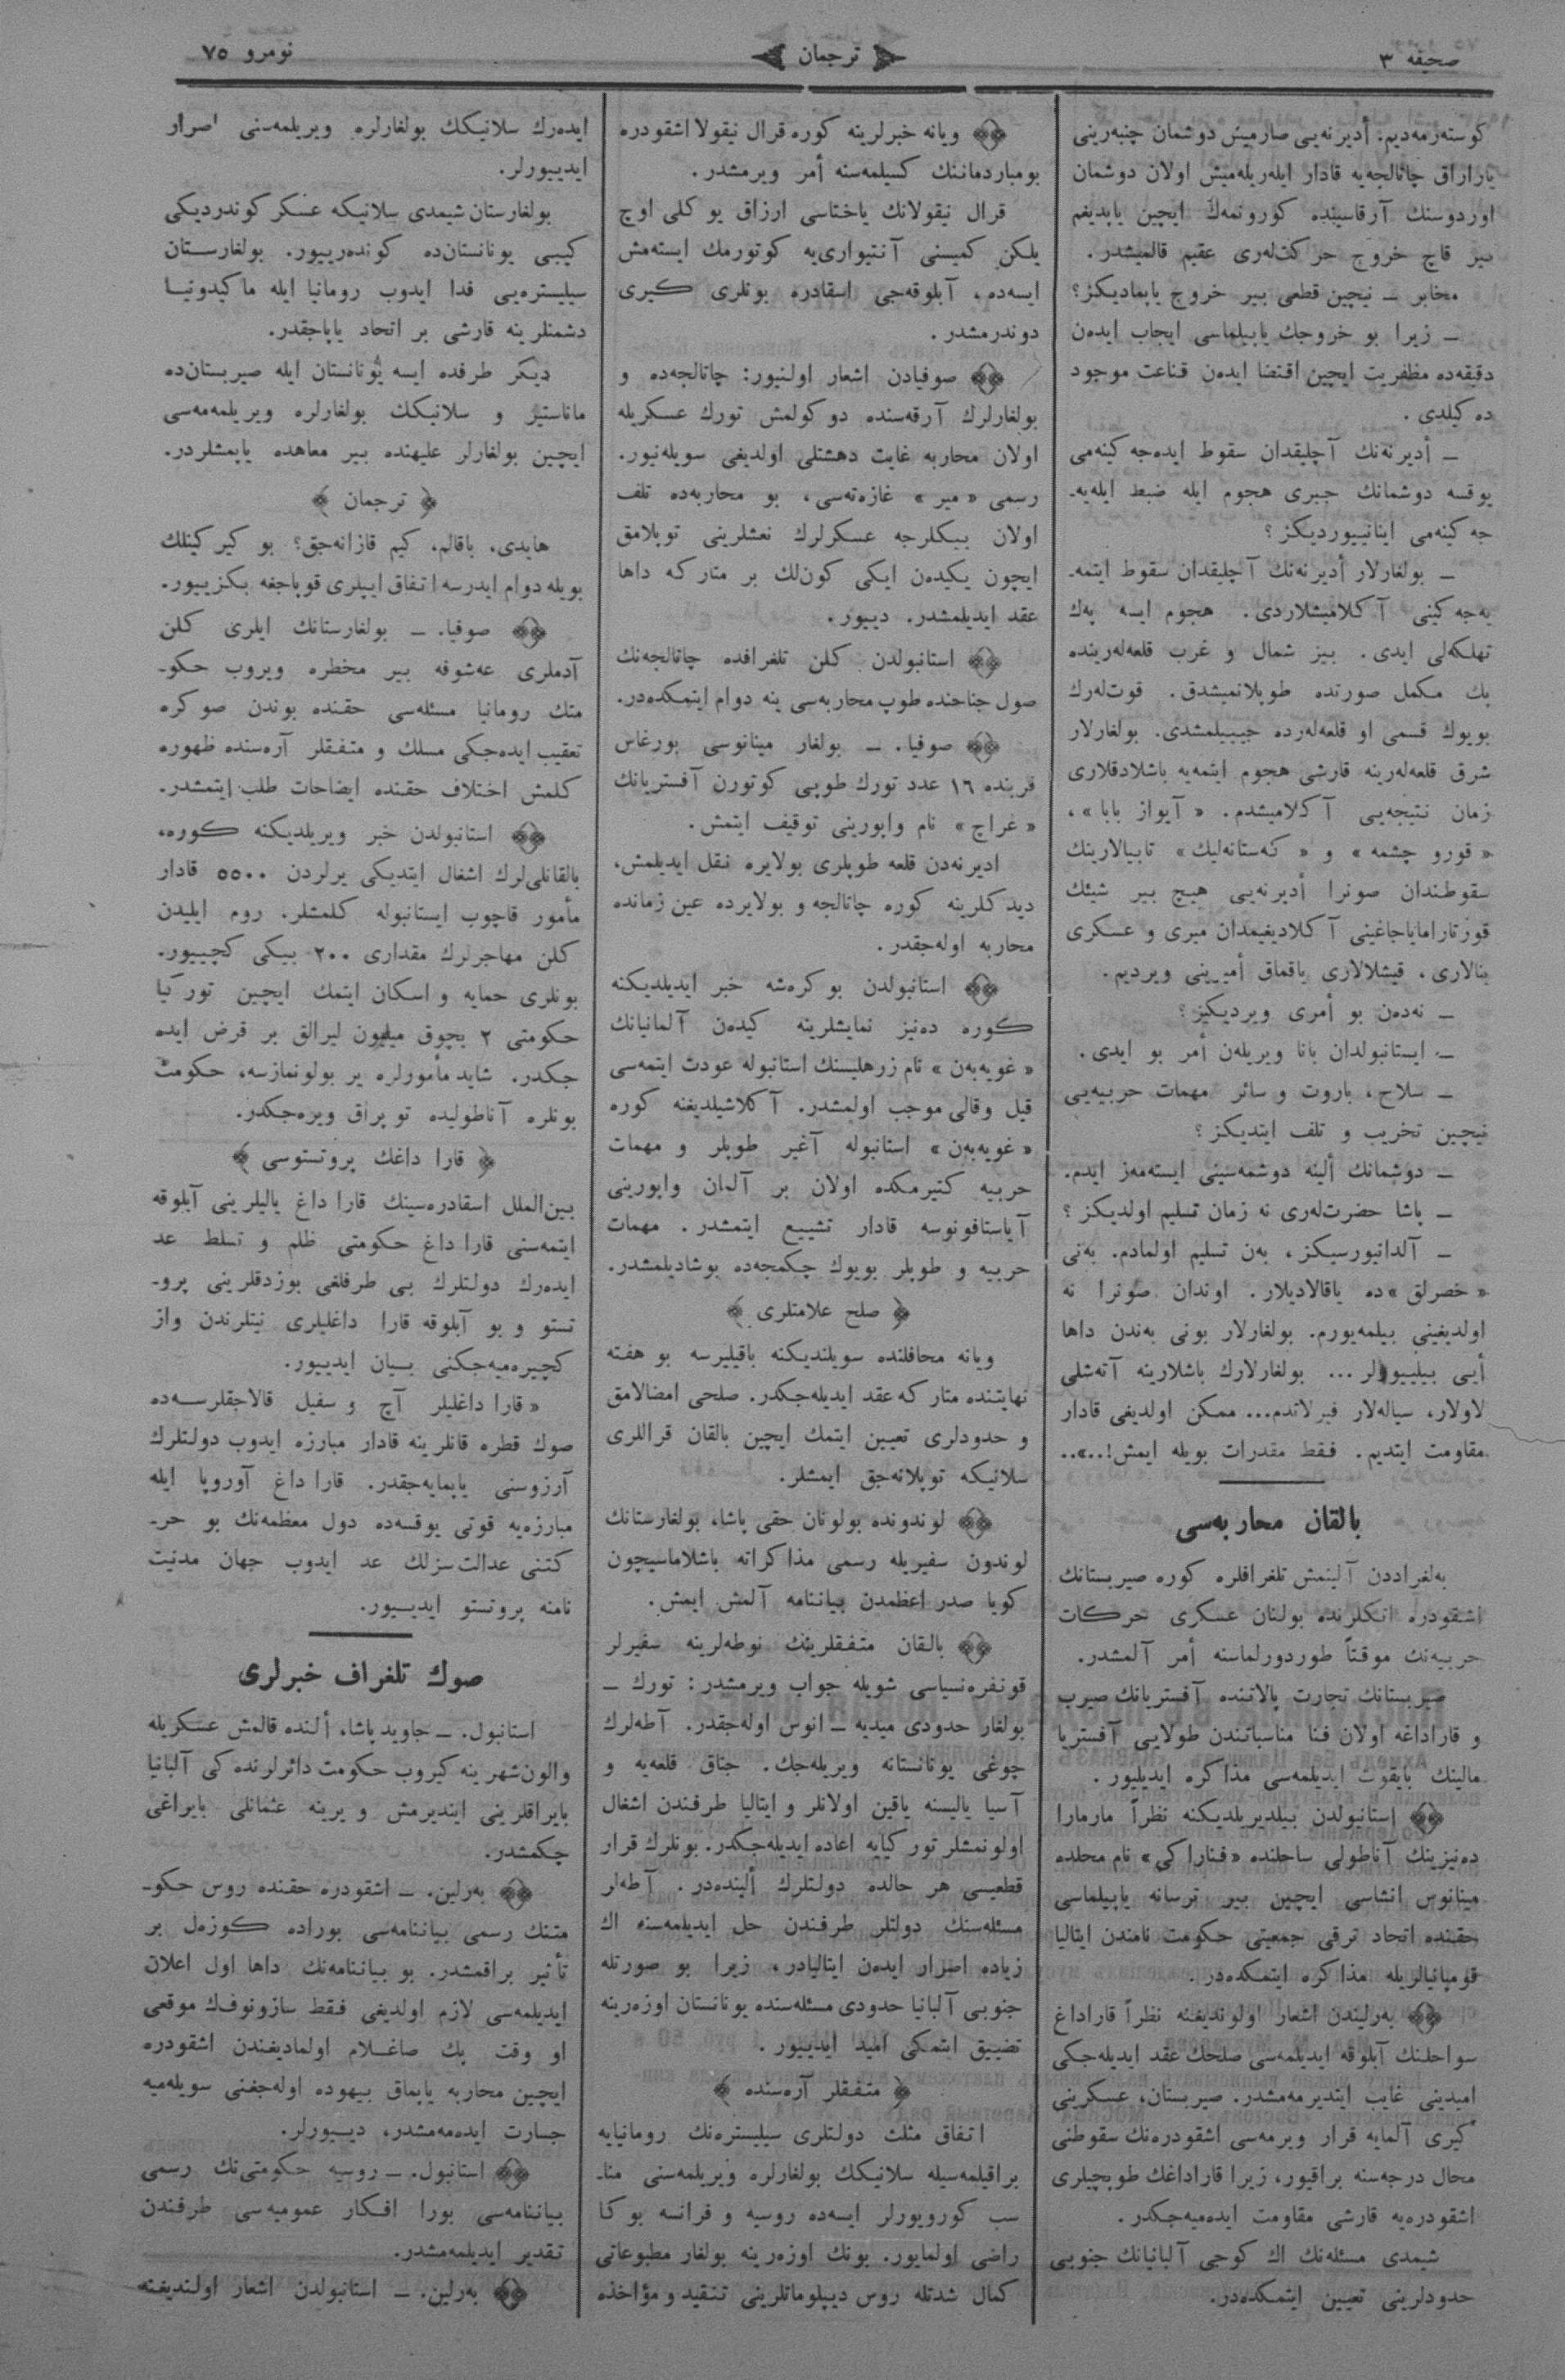 صحیفه ۳
ترجمان
نومرو ۷۵
كوستەرمەدیم. أدیرنەیی صارمیش دوشمان چنبەرینی
یاراراق چاتالجەیه قادار ایلەریلەمیش اولان دوشمان
اوردوسنك آرقاسینده كورونمەك ایچین یاپدیغم
بیر قاچ خروج حركتلەری عقیم قالمیشدر.
مخابر ــ نیچین قطعی بیر خروج یاپمادیكز؟
ــ زیرا بو خروجك یاپیلماسی ایجاب ایدەن
دقیقەده مظفریت ایچین اقتضا ایدەن قناعت موجود
دەكیلدی.
ــ أدیرنەنك آچلیقدان سقوط ایدەجەكینەمی
یوقسه دوشمانك جبری هجوم ایله ضبط ایلەیەـ
جەكینەمی اینانییوردیكز؟
ــ بولغارلار أدیرنەنك آچلیقدان سقوط ایتمەـ
یەجەكینی آكلامیشلاردی. هجوم ایسه پەك
تهلكەلی ایدی. بیز شمال و غرب قلعەلەرینده
پك مكمل صورتده طوپلانمیشدق. قوتلەرك
بویوك قسمی او قلعەلەرده جیبیلمشدی. بولغارلار
شرق قلعەلەرینه قارشی هجوم ایتمەیه باشلادقلاری
زمان نتیجەیی آكلامیشدم. «آیواز بابا»،
«قورو چشمه» و «كەستانەلیك» تابیالارینك
سقوطندان صونرا أدیرنەیی هیچ بیر شیئك
قورتارامایاجاغینی آكلادیغیمدان میری و عسكری
بنالاری، قیشلالاری یاقماق أمیرینی ویردیم.
ــ نەدەن بو أمری ویردیكیز؟
ــ ایستانبولدان بانا ویریلەن أمر بو ایدی.
ــ سلاح، باروت و سائر مهمات حربیەیی
نیچین تخریب و تلف ایتدیكز؟
ــ دوشمانك ألینه دوشمەسینی ایستەمەز ایدم.
ــ پاشا حضرتلەری نه زمان تسلیم اولدیكز؟
ــ آلدانیورسیكز، بەن تسلیم اولمادم. بەنی
«خصرلق»ده یاقالادیلار. اوندان صونرا نه
اولدیغینی بیلمەیورم. بولغارلار بونی بەندن داها
أیی بیلییورلر... بولغارلارك باشلارینه آتەشلی
لاولار، سیالەلار فیرلاتدم... ممكن اولدیغی قادار
مقاومت ایتدیم. فقط مقدرات بویله ایمش!..»..
بالقان محاربەسی
بەلغراددن آلینمش تلغرافلره كوره صیربستانك
اشقودره اتكلرنده بولنان عسكری حركات
حربیەنك موقتاً طوردورلماسنه أمر آلمشدر.
صیربستانك تجارت پالاتنده آفستریانك صیرب
و قاراداغه اولان فنا مناسباتندن طولایی آفستریا
مالینك بایقوت ایدیلمەسی مذاكره ایدیلیور.
استانبولدن بیلدیریلدیكنه نظراً مارمارا
دەنیزینك آناطولی ساحلنده «فناراكی» نام محلده
مینانوس انشاسی ایچین بیر ترسانه یاپیلماسی
حقنده اتحاد ترقی جمعیتی حكومت نامندن ایتالیا
قومپانیالریله مذاكره ایتمكدەدر.
بەرلیندن اشعار اولوندیغنه نظراً قاراداغ
سواحلنك آبلوقه ایدیلمەسی صلحك عقد ایدیلەجكی
امیدینی غایب ایتدیرمەمشدر. صیربستان، عسكرینی
كیری آلمایه قرار ویرمەسی اشقودرەنك سقوطنی
محال درجەسنه براقیور، زیرا قاراداغك طوپچیلری
اشقودرەیه قارشی مقاومت ایدەمیەجكدر.
شیمدی مسئلەنك اك كوجی آلبانیانك جنوبی
حدودلرینی تعیین ایتمكدەدر.
ویانه خبرلرینه كوره قرال نیقولا اشقودره
بومباردماننك كسیلمەسنه أمر ویرمشدر.
قرال نیقولانك یاختاسی ارزاق یوكلی اوچ
یلكن كمیسنی آنتیواری‌یه كوتورمك ایستەمش
ایسەده، آبلوقەجی اسقادره بونلری كیری
دوندرمشدر.
صوفیادن اشعار اولنیور: چاتالجەده و
بولغارلرك آرقەسنده دوكولمش تورك عسكریله
اولان محاربه غایت دهشتلی اولدیغی سویلەنیور.
رسمی «میر» غازەتەسی، بو محاربەده تلف
اولان بیكلرجه عسكرلرك نعشلرینی توپلامق
ایچون یكیدەن ایكی كون‌لك بر متاركه داها
عقد ایدیلمشدر. دییور.
استانبولدن كلن تلغرافده چاتالجەنك
صول جناحنده طوپ محاربەسی ینه دوام ایتمكدەدر.
صوفیا. ــ بولغار مینانوسی بورغاس
قربنده ۱۶ عدد تورك طوپی كوتورن آفستریانك
«غراچ» نام واپورینی توقیف ایتمش.
ادیرنەدن قلعه طوپلری بولایره نقل ایدیلمش.
دیدكلرینه كوره چاتالجه و بولایرده عین زمانده
محاربه اولەجقدر.
استانبولدن بو كرەشه خبر ایدیلدیكنه
كوره دەنیز نمایشلرینه كیدەن آلمانیانك
«غویەبەن» نام زرهلیسنك استانبوله عودت ایتمەسی
قیل وقالی موجب اولمشدر. آكلاشیلدیغنه كوره
«غویەبەن» استانبوله آغیر طوپلر و مهمات
حربیه كتیرمكده اولان بر آلمان واپورینی
آیاستافونوسه قادار تشییع ایتمشدر. مهمات
حربیه و طوپلر بویوك چكمجەده بوشادیلمشدر.
﴿ صلح علامتلری ﴾
ویانه محافلنده سویلندیكنه باقیلیرسه بو هفته
نهایتنده متاركه عقد ایدیلەجكدر. صلحی امضالامق
و حدودلری تعیین ایتمك ایچین بالقان قراللری
سلانیكه توپلانەجق ایمشلر.
لوندونده بولونان حقی پاشا، بولغارستانك
لوندون سفیریله رسمی مذاكراته باشلاماسیچون
كویا صدر اعظمدن بیاننامه آلمش ایمش.
بالقان متفقلرینك نوطەلرینه سفیرلر
قونفرەنسیاسی شویله جواب ویرمشدر: تورك ــ
بولغار حدودی میدیه ــ انوس اولەجقدر. آطەلرك
چوغی یونانستانه ویریلەجك. چناق قلعەیه و
آسیا یالیسنه یاقین اولانلر و ایتالیا طرفندن اشغال
اولونمشلر توركیایه اعاده ایدیلەجكدر. بونلرك قرار
قطعیسی هر حالده دولتلرك ألیندەدر. آطەلر
مسئلەسنك دولتلر طرفندن حل ایدیلمەسنه اك
زیاده اصرار ایدەن ایتالیادر، زیرا بو صورتله
جنوبی آلبانیا حدودی مسئلەسنده یونانستان اوزەرینه
تضییق ایتمكی امید ایدییور.
﴿ متفقلر آرەسنده ﴾
اتفاق مثلث دولتلری سیلیسترەنك رومانیایه
براقیلمەسیله سلانیكك بولغارلره ویریلمەسنی مناـ
سب كورویورلر ایسەده روسیه و فرانسه بوكا
راضی اولمایور. بونك اوزەرینه بولغار مطبوعاتی
كمال شدتله روس دیپلوماتلرینی تنقید و مؤاخذه
ایدەرك سلانیكك بولغارلره ویریلمەسنی اصرار
ایدییورلر.
بولغارستان شیمدی سلانیكه عسكر كوندردیكی
كیبی یونانستان‌ده كوندەرییور. بولغارستان
سیلیسترەیی فدا ایدوب رومانیا ایله ماكیدونیا
دشمنلرینه قارشی بر اتحاد یاپاجقدر.
دیكر طرفده ایسه یونانستان ایله صیربستان‌ده
ماناستیر و سلانیكك بولغارلره ویریلمەمەسی
ایچین بولغارلر علیهنده بیر معاهده یاپمشلردر.
﴿ ترجمان ﴾
هایدی، باقالم، كیم قازانەجق؟ بو كیركینلك
بویله دوام ایدرسه اتفاق ایپلری قوپاجغه بكزییور.
صوفیا. ــ بولغارستانك ایلری كلن
آدملری عەشوفه بیر مخطره ویروب حكوـ
متك رومانیا مسئلەسی حقنده بوندن صوكره
تعقیب ایدەجكی مسلك و متفقلر آرەسنده ظهوره
كلمش اختلاف حقنده ایضاحات طلب ایتمشدر.
استانبولدن خبر ویریلدیكنه كوره،
بالقانلی‌لرك اشغال ایتدیكی یرلردن ۵۵۰۰ قادار
مأمور قاچوب ایستانبوله كلمشلر. روم ایلیدن
كلن مهاجرلرك مقداری ۲۰۰ بیكی كچییور.
بونلری حمایه و اسكان ایتمك ایچین توركیا
حكومتی ۲ بچوق میلیون لیرالق بر قرض ایده
جكدر. شاید مأمورلره یر بولونمازسه، حكومت
بونلره آناطولیده توپراق ویرەجكدر.
﴿ قارا داغك پروتستوسی ﴾
بین‌الملل اسقادرەسینك قارا داغ یالیلرینی آبلوقه
ایتمەسنی قارا داغ حكومتی ظلم و تسلط عد
ایدەرك دولتلرك بی طرفلغی بوزدقلرینی پروـ
تستو و بو آبلوقه قارا داغلیلری نیتلرندن واز
كچیرەمیەجكنی بیان ایدییور.
«قارا داغلیلر آچ و سفیل قالاجقلرسەده
صوك قطره قانلرینه قادار مبارزه ایدوب دولتلرك
آرزوسنی یاپمایەجقدر. قارا داغ آوروپا ایله
مبارزەیه قوتی یوقسەده دول معظمەنك بو حرـ
كتنی عدالت‌سزلك عد ایدوب جهان مدنیت
نامنه پروتستو ایدییور.
صوك تلغراف خبرلری
استانبول. ــ جاوید پاشا، ألنده قالمش عسكریله
والون‌شهرینه كیروب حكومت دائرلرنده‌كی آلبانیا
بایراقلرینی ایندیرمش و یرینه عثمانلی بایراغی
چكمشدر.
بەرلین. ــ اشقودره حقنده روس حكوـ
متنك رسمی بیاننامەسی بوراده كوزەل بر
تأثیر براقمشدر. بو بیاننامەنك داها اول اعلان
ایدیلمەسی لازم اولدیغی فقط سازونوفك موقعی
او وقت پك صاغلام اولمادیغندن اشقودره
ایچین محاربه یاپماق بیهوده اولەجغنی سویلەمیه
جسارت ایدەمەمشدر، دییورلر.
استانبول. ــ روسیه حكومتی‌نك رسمی
بیاننامەسی بورا افكار عمومیەسی طرفندن
تقدیر ایدیلمەمشدر.
بەرلین. ــ استانبولدن اشعار اولندیغنه